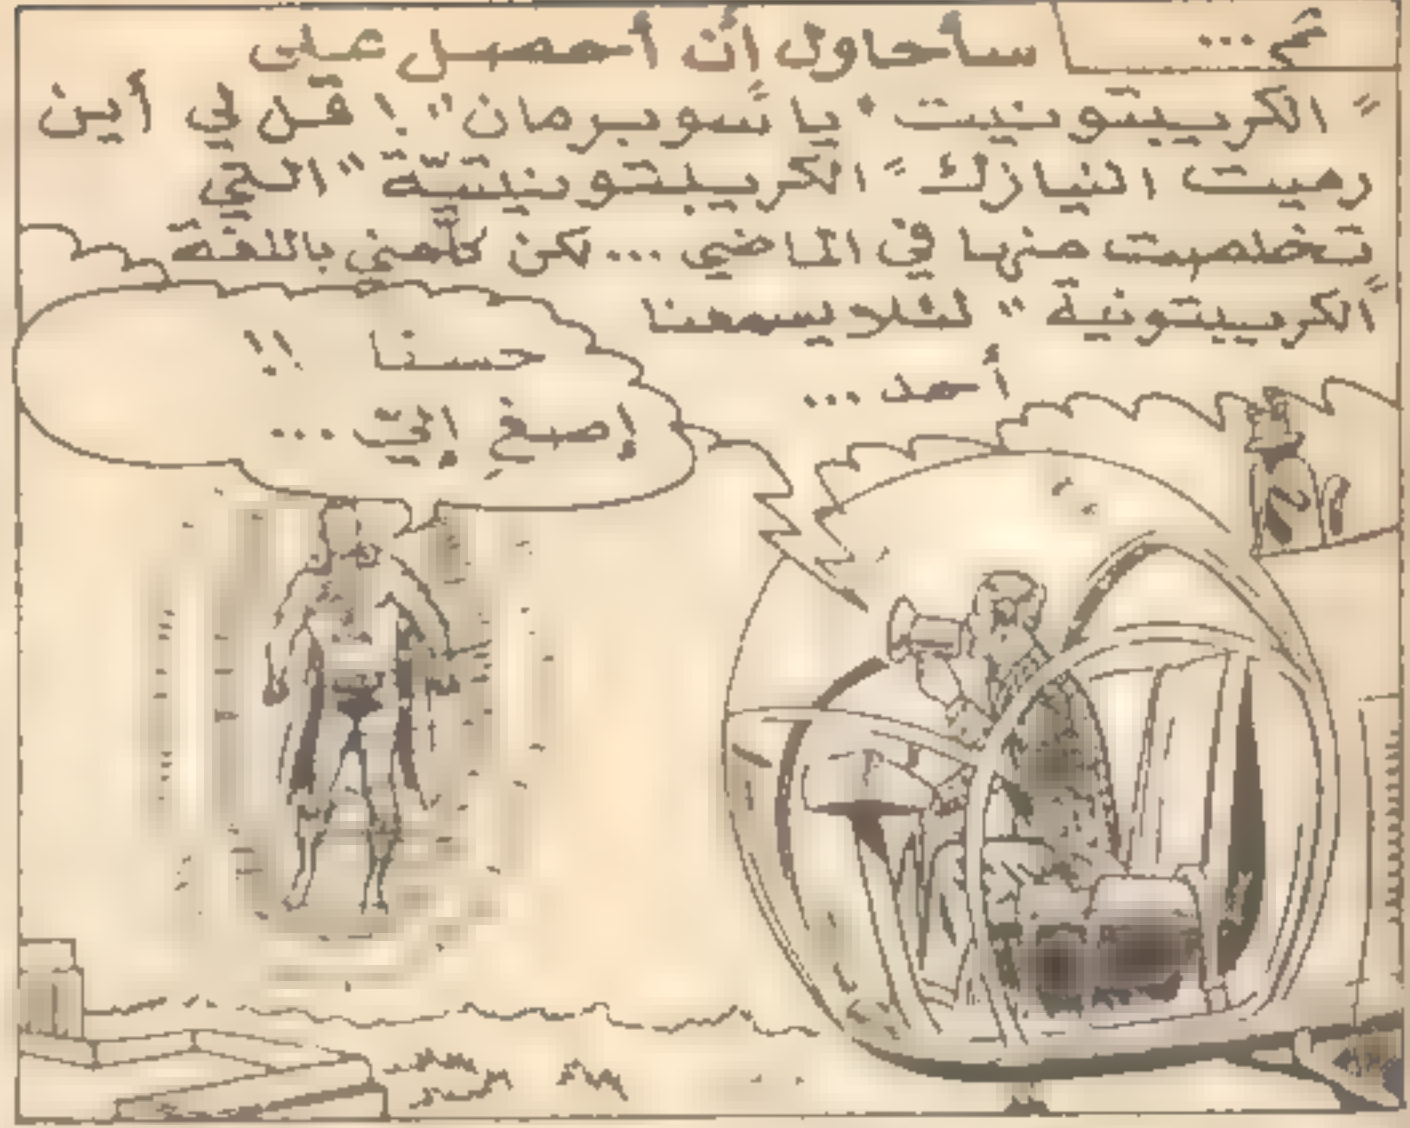 ثم...
سأحاول أن أحصل على
"الكريبتونيت" يا "سوبرمان"! قل لي أين
رميت النيازك "الكريبتونيتيّة" التي
تخلصت منها في الماضي... لكن كلّمني باللغة
"الكريبتونية" لئلا يسمعنا
أحد...
حسنا !!
إصغِ إليّ...